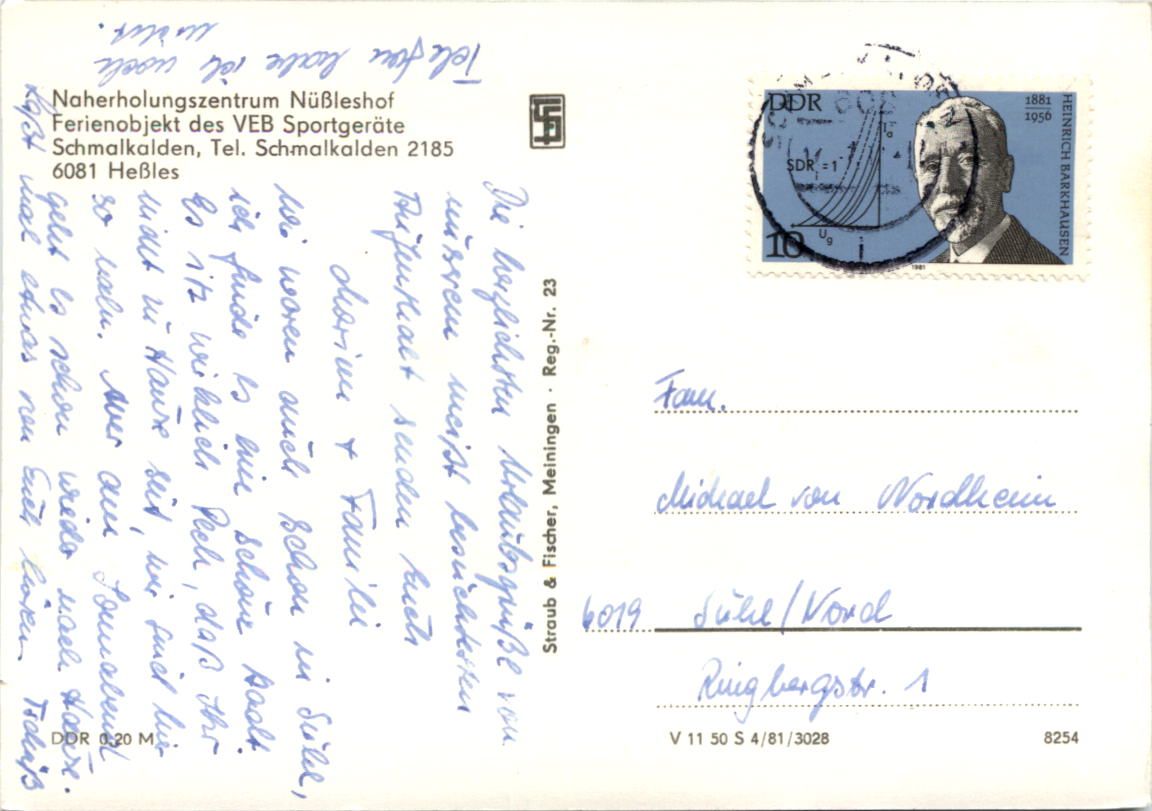 Naherholungszentrum Nüßleshof
Ferienobjekt des VEB Sportgeräte
Schmalkalden, Tel. Schmalkalden 2185
6081 Heßles
Die herzlichsten Urlaubsgrüße von
unserem meist besuchtesten
Aufenthalt senden Euch
Marion + Familie
Wir waren auch schon in Suhl,
ich finde es eine schöne Stadt.
Es ist wirklich Pech, daß Ihr
nicht zu Hause seid, wir sind hier
so nah. Aber am Sonnabend
geht es schon wieder nach Hause.
Laßt mal etwas von Euch hören. Tschüß
Telefon habe ich noch
nicht.
Straub & Fischer, Meiningen · Reg.-Nr. 23
DDR
1881
1956
HEINRICH BARKHAUSEN
SDRi=1
Ia
Ug
10
1981
Fam.
Michael von Nordheim
6019 Suhl/Nord
Ringbergstr. 1
DDR 0,20 M
V 11 50 S 4/81/3028
8254